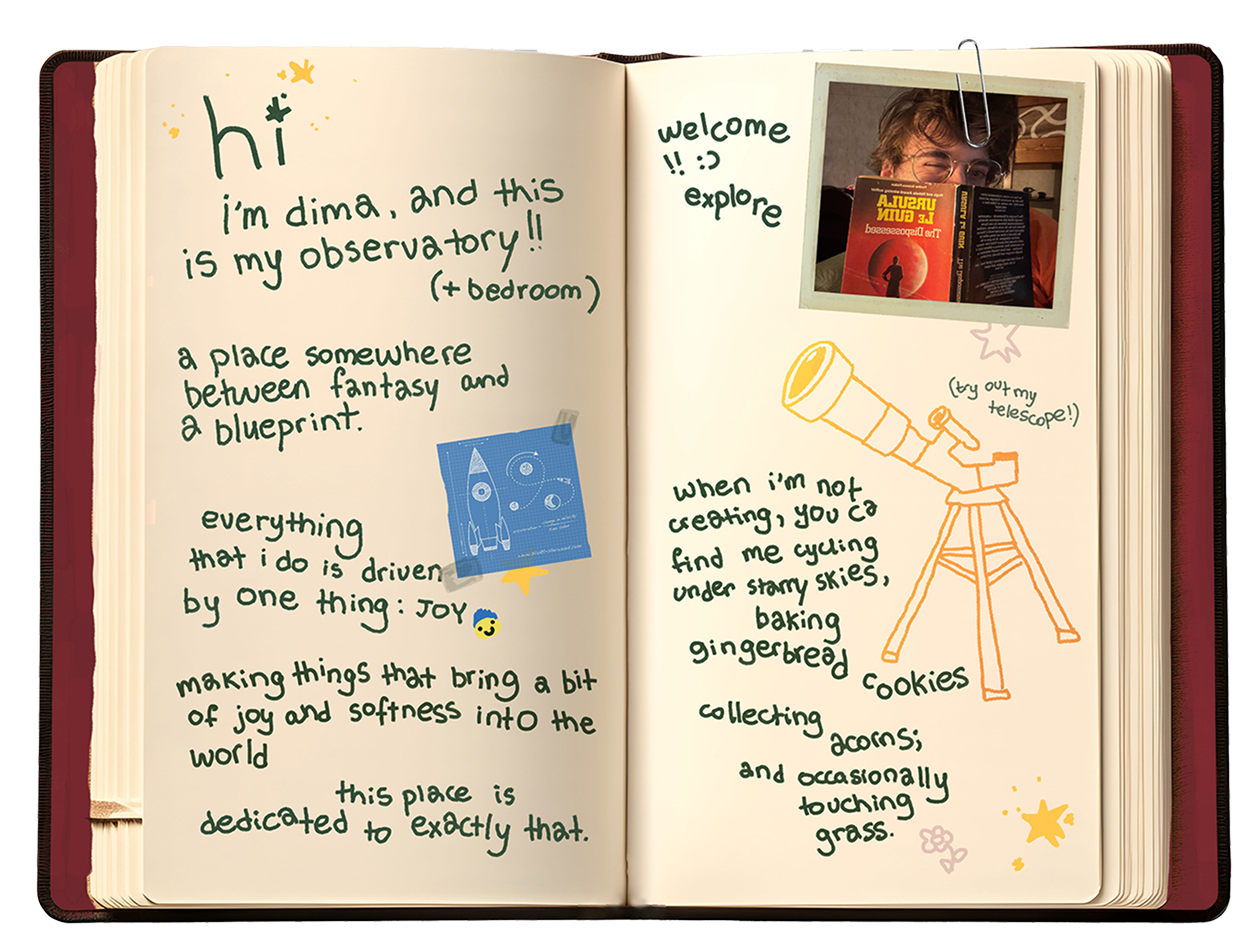 hi
i'm dima, and this
is my observatory!!
(+ bedroom)
a place somewhere
between fantasy and
a blueprint.
everything
that i do is driven
by one thing: JOY
making things that bring a bit
of joy and softness into the
world
this place is
dedicated to exactly that.
welcome
!! :)
explore
URSULA
LE GUIN
The Dispossessed
URSULA LE GUIN
(try out my
telescope!)
when i'm not
creating, you ca
find me cycling
under starry skies,
baking
gingerbread
cookies
collecting
acorns;
and occasionally
touching
grass.